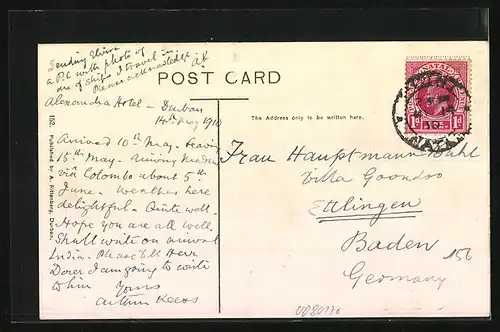 Sending
a P.C. with photo of
one of ships I travel in
Please acknowledge
POST CARD
Alexandra Hotel – Durban
14th May 1910
The Address only to be written here.
Arrived 10th May. Leaving
15th May – Arriving Madras
via Colombo about 5th
June. Weather here
delightful – Quite well –
Hope you are all well.
Shall write on arrival
India. Please tell Herr
I am going to write
to him Yours
Arthur
152. Published by A. Rittenberg, Durban.
NATAL
1d 1d
NATAL
Frau Hauptmann
Villa
Ettlingen
Baden
Germany
156